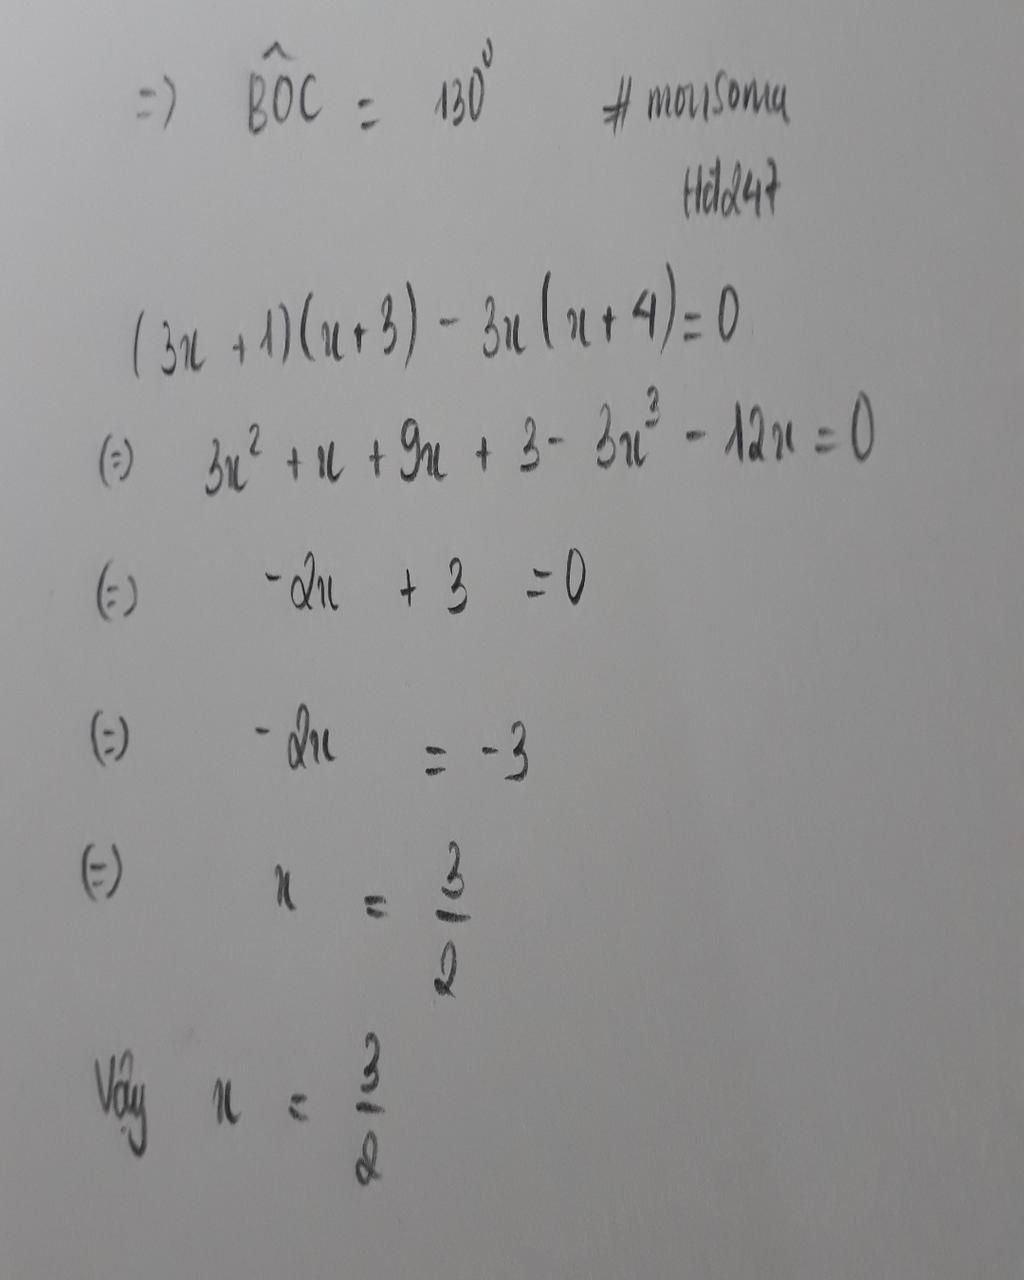 => BÔC = 130⁰ # morisoma
Hd247
(3x + 1)(x + 3) - 3x(x + 4) = 0
(=) 3x² + x + 9x + 3 - 3x³ - 12x = 0
(=) -2x + 3 = 0
(=) -2x = -3
(=) x = 3/2
Vậy x = 3/2